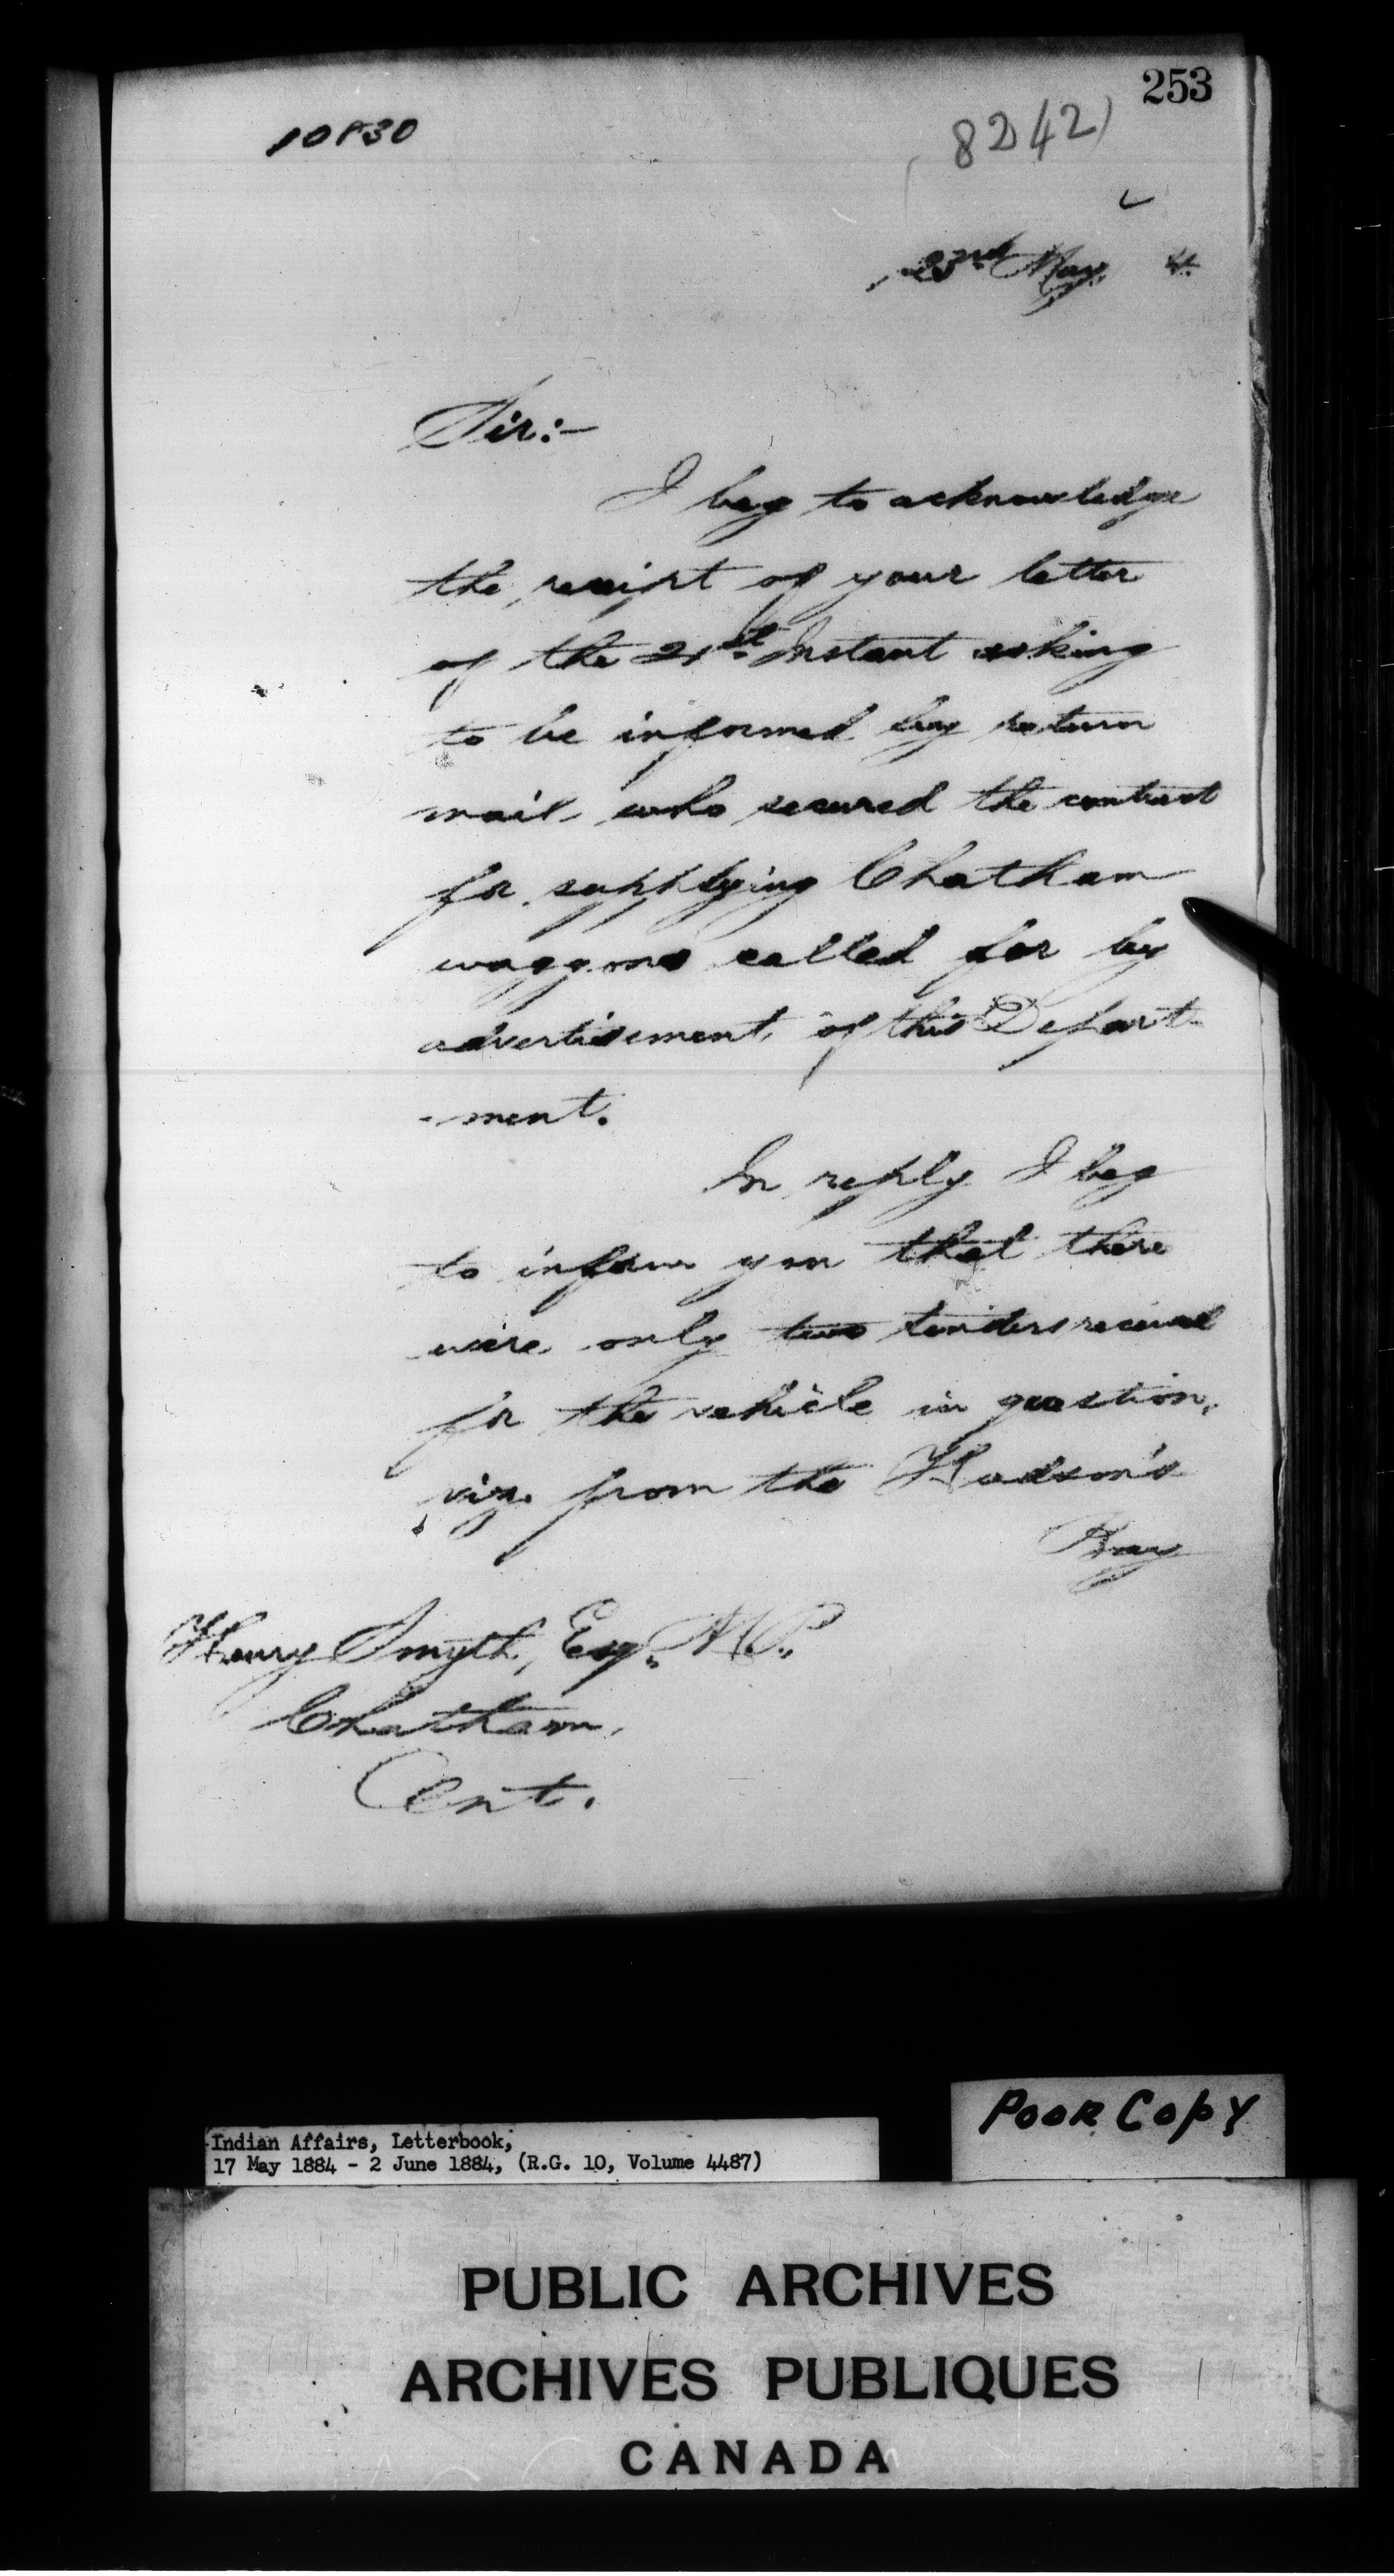 253
10830
8242)
23rd May 4.
Sir:-
I beg to acknowledge
the receipt of your letter
of the 21st Instant asking
to be informed by return
mail who secured the contract
for supplying Chatham
waggons called for by
advertisement of this Depart-
-ment.
In reply I beg
to inform you that there
were only two tenders received
for the vehicle in question,
viz. from the Hudson's
Bay
Henry Smyth, Esq., M.P.,
Chatham,
Ont.
Poor Copy
Indian Affairs, Letterbook,
17 May 1884 - 2 June 1884, (R.G. 10, Volume 4487)
PUBLIC ARCHIVES
ARCHIVES PUBLIQUES
CANADA